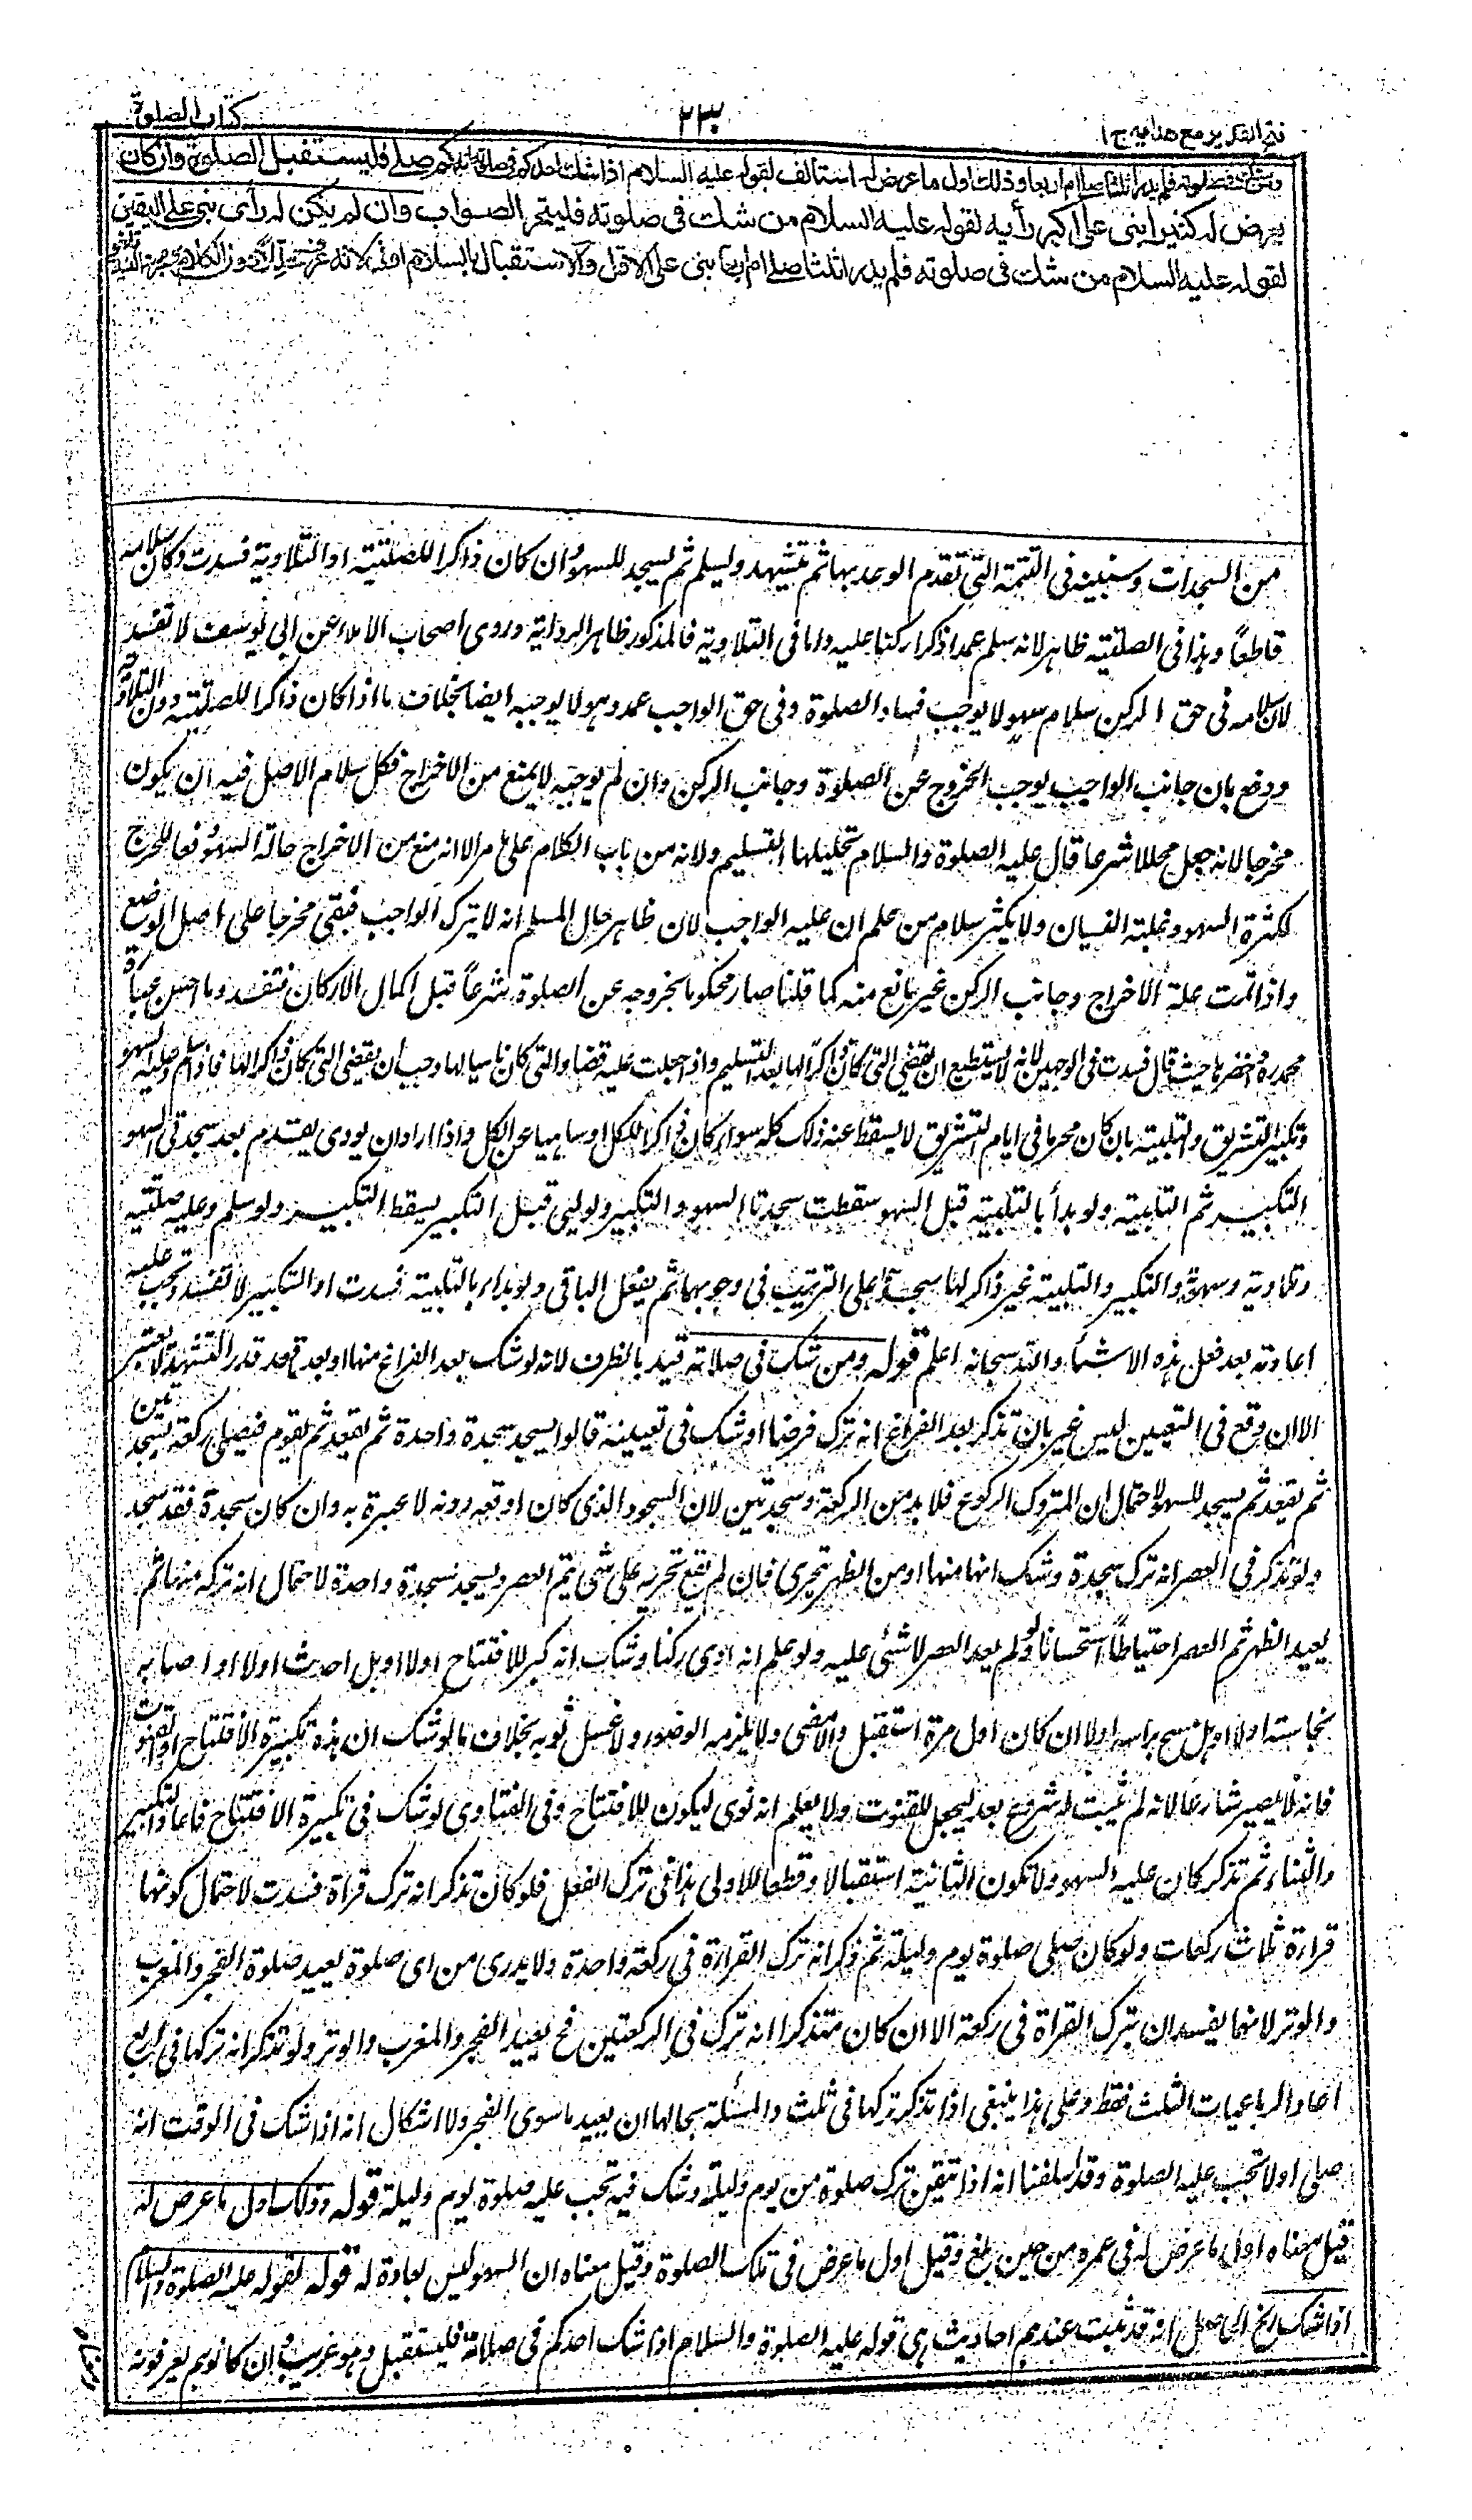 فتح القدير مع هدايه ج ١
٢٣٠
كتاب الصلوة
ومن شك في صلوته فلم يدر أثلثا صلى ام اربعا وذلك اول ما عرض له استأنف لقوله عليه السلام اذا شك احدكم في صلوته انه كم صلى فليستقبل الصلوة وان كان
يعرض له كثيرا بنى على اكبر رأيه لقوله عليه السلام من شك في صلوته فليتحر الصواب وان لم يكن له رأى بنى على اليقين
لقوله عليه السلام من شك في صلوته فلم يدر اثلثا صلى ام اربعا بنى على الاقل والاستقبال بالسلام اولى لانه عرف محللا دون الكلام
من السجدات وسنبينه في التتمة التي تقدم الوعد بها ثم يتشهد ويسلم ثم يسجد للسهو وان كان ذاكرا للصلبية او التلاوية فسدت وكان سلامه
قاطعاً وهذا في الصلبية ظاهر لانه سلم عمدا ذاكرا ركنا عليه واما في التلاوية فالمذكور ظاهر الرواية وروى اصحاب الاملاء عن ابي يوسف لا تفسد
لان سلامه في حق الركن سلام سهو لا يوجب فساد الصلوة وفي حق الواجب عمد وهو لا يوجبه ايضا بخلاف ما اذا كان ذاكرا للصلبية دون التلاوية
ودفع بان جانب الواجب يوجب الخروج عن الصلوة وجانب الركن وان لم يوجبه لا يمنع من الاخراج فكل سلام الاصل فيه ان يكون
مخرجا لانه جعل محللا شرعا قال عليه الصلوة والسلام تحليلها التسليم ولانه من باب الكلام على ما مر الا انه منع من الاخراج حالة السهو دفعا للحرج
لكثرة السهو وغلبة النسيان ولا يكثر سلام من علم ان عليه الواجب لان ظاهر حال المسلم انه لا يترك الواجب فبقي مخرجا على اصل الوضع
واذا تمت علة الاخراج وجانب الركن غير مانع منه كما قلنا صار محكوما بخروجه عن الصلوة شرعاً قبل اكمال الاركان فتفسد وما احسن عبارة
محمد رح مختصرها حيث قال فسدت في الوجهين لانه لا يستطيع ان يقضي التي كان ذاكرا لها بعد التسليم واذا جعلت عليه قضاء والتي كان ناسيا لها وجب ان يقضي التي كان ذاكرا لها فاذا سلم وعليه السهو
وتكبير التشريق والتلبية بان كان محرما في ايام التشريق لا يسقط عنه ذلك كله سواء كان ذاكرا للكل او ساهيا عن الكل واذا اراد ان يودى يقدم بعد سجدتي السهو
التكبير ثم التلبية ولو بدأ بالتلبية قبل السهو سقطت سجدتا السهو والتكبير ولو لبى قبل التكبير يسقط التكبير ولو سلم وعليه صلبية
وتلاوية وسهو والتكبير والتلبية غير ذاكر لها سجد على الترتيب في وجوبها ثم يفعل الباقي ولو بدأ بالتلبية فسدت او التكبير لا تفسد وتجب عليه
اعادته بعد فعل هذه الاشياء والله سبحانه اعلم قوله ومن شك في صلاته قيد بالظرف لانه لو شك بعد الفراغ منها او بعد ما قعد قدر التشهد لا يعتبر
الا ان وقع في التعيين ليس غير بان تذكر بعد الفراغ انه ترك فرضا وشك في تعيينه قالوا يسجد سجدة واحدة ثم يقعد ثم يقوم فيصلي ركعة بسجدتين
ثم يقعد ثم يسجد للسهو لاحتمال ان المتروك الركوع فلا بد من الركعة وسجدتين لان السجود الذي كان اوقعه دونه لا عبرة به وان كان سجدة فقد سجد
ولو تذكر في العصر انه ترك سجدة وشك انها منها او من الظهر تحرى فان لم يقع تحريه على شئ يتم العصر ويسجد سجدة واحدة لاحتمال انه تركه منها ثم
يعيد الظهر ثم العصر احتياطاً استحسانا ولو لم يعد العصر لا شئ عليه ولو علم انه ادى ركنا وشك انه كبر للافتتاح اولا او هل احدث اولا او اصابه
نجاسة اولا او هل مسح براسه اولا ان كان اول مرة استقبل والا مضى ولا يلزمه الوضوء ولا غسل ثوبه بخلاف ما لو شك ان هذه تكبيرة الافتتاح او القنوت
فانه لا يصير شارعا لانه لم يثبت له شروع بعد ليجعل للقنوت ولا يعلم انه نوى ليكون للافتتاح وفي الفتاوى لو شك في تكبيرة الافتتاح فاعاد التكبير
والثناء ثم تذكر كان عليه السهو ولا تكون الثانية استقبالا وقطعا للاولى هذا في ترك الفعل فلو كان تذكر انه ترك قراة فسدت لاحتمال كونها
قراءة ثلاث ركعات ولو كان صلى صلوة يوم وليلة ثم ذكر انه ترك القراءة في ركعة واحدة ولا يدرى من اى صلوة يعيد صلوة الفجر والمغرب
والوتر لانهما يفسدان بترك القراة في ركعة الا ان كان متذكرا انه ترك في الركعتين فح يعيد الفجر والمغرب والوتر ولو تذكر انه تركها في اربع
اعاد الرباعيات الثلث فقط وعلى هذا ينبغي اذا تذكر تركها في ثلث والمسئلة بحالها ان يعيد ما سوى الفجر ولا اشكال انه اذا شك في الوقت انه
صلى اولا تجب عليه الصلوة وقد اسلفنا انه اذا تيقن ترك صلوة من يوم وليلة وشك فيه تجب عليه صلوة يوم وليلة قوله وذلك اول ما عرض له
قيل معناه اول ما عرض له في عمره من حين بلغ وقيل اول ما عرض في تلك الصلوة وقيل معناه ان السهو ليس بعادة له قوله لقوله عليه الصلوة والسلام
اذا شك الخ الحاصل انه قد ثبت عندهم احاديث هي قوله عليه الصلوة والسلام اذا شك احدكم في صلاته فليستقبل وهو غريب وان كانوا هم يعرفونه